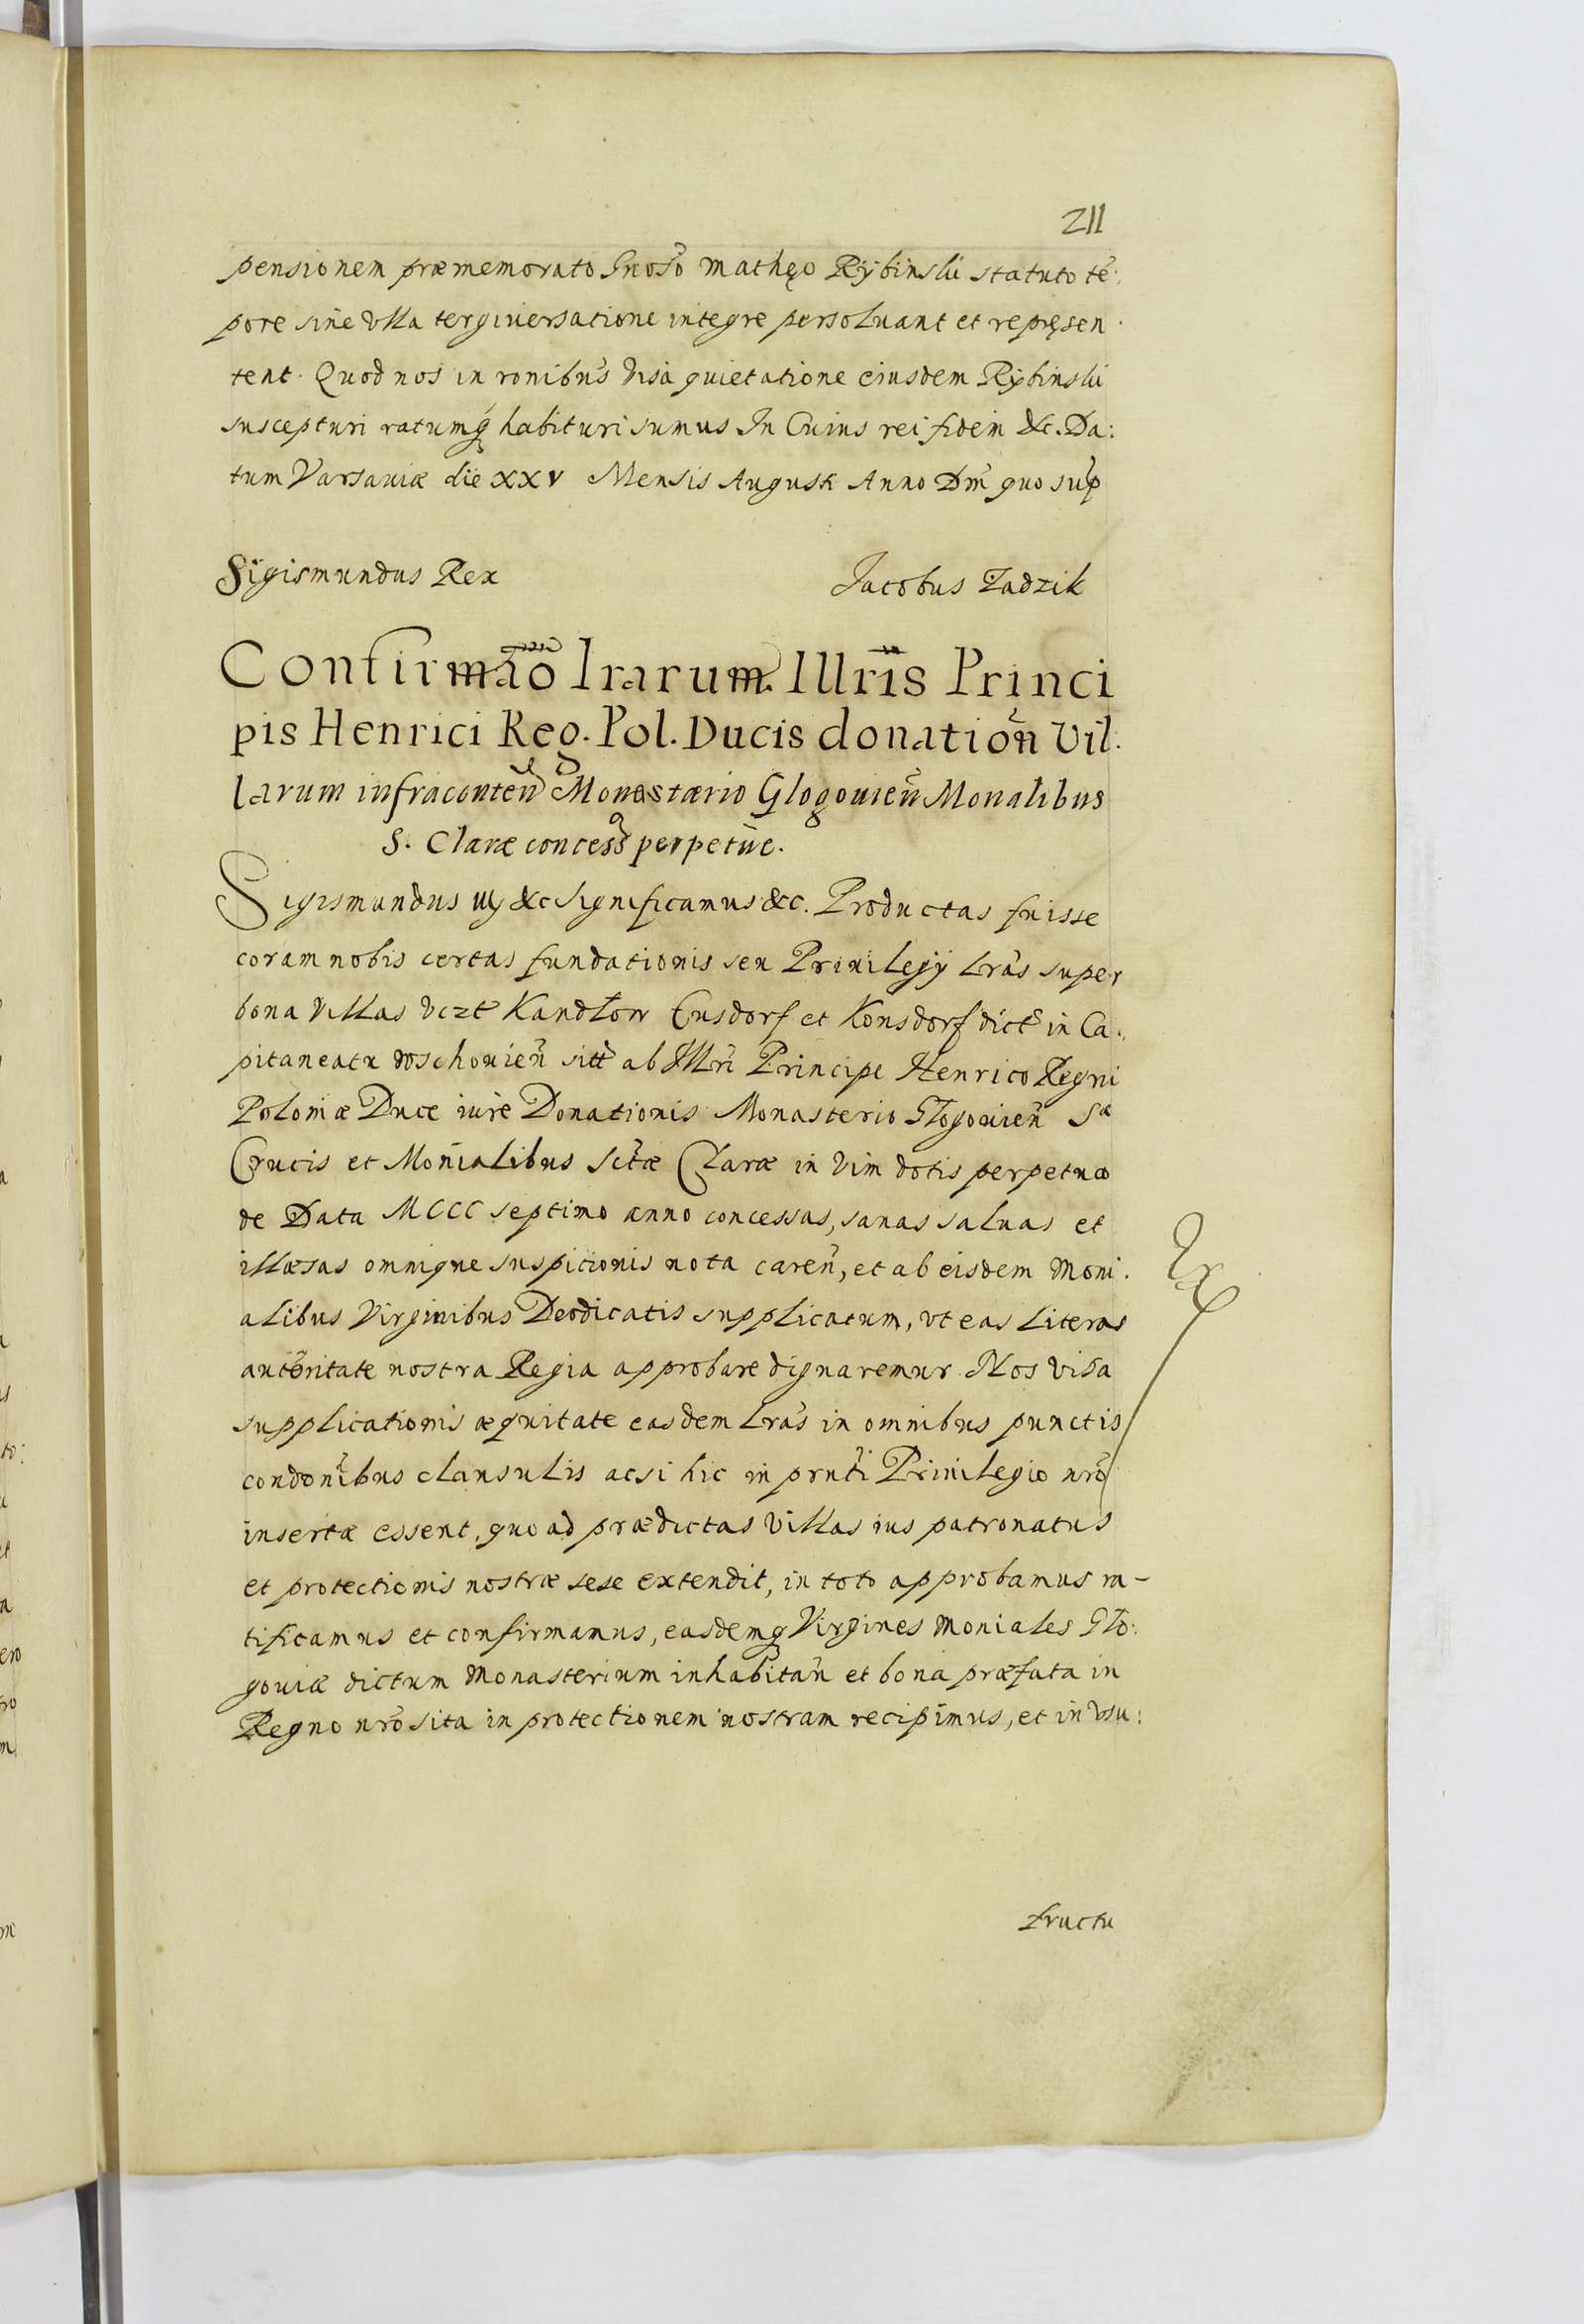 211
pensionem præmemorato Gnoso Mathęo Rÿbinslii statuto tē:
pore sine vlla tergiuersatione integre persoluant et repręsen.
tent. Quod nos in ronibus visa quietatione eiusdem Rÿbinslii
suscepturi ratumq habituri sumus In Cuius rei fidem &c. Da:
tum Varsauiæ die XXV Mensis Augusti Anno Dm̄ quo sup
Sigismundus Rex Jacobus Zadzik
Confirmāo lrarum Illris Princi
pis Henrici Reg. Pol. Ducis donation Vil.
larum infraconten Monastærio Glogouien Monalibus
S. Claræ concess perpetue.
Sigismundus iij &c Significamus &c. Productas fuisse
coram nobis certas fundationis seu Priuilegÿ Lras super
bona villas vczt Kandlow Cusdorf et Konsdorf dict in Ca:
pitaneatu Wschouien sitt ab Illri Principe Henrico Regni
Poloniæ Duce iure Donationis Monasterio Glogouien Sᵃ
Crucis et Monialibus Sctæ Claræ in vim dotis perpetuo
de Data MCCC septimo anno concessas, sanas saluas et
illæsas omnique suspicionis nota caren, et ab eisdem Moni.
alibus Virginibus Deodicatis supplicatum, vt eas literas
autoritate nostra Regia approbare dignaremur. Nos visa
supplicationis æquitate easdem Lras in omnibus punctis
condonibus clausulis acsi hic in prnti Priuilegio nro
insertæ essent, quo ad prædictas villas ius patronatus
et protectionis nostræ sese extendit, in toto approbamus ra-
tificamus et confirmamus, easdemq Virgines Moniales Glo:
gouiæ dictum Monasterium inhabitan et bona præfata in
Regno nro sita in protectionem nostram recipimus, et in vsu:
fructu